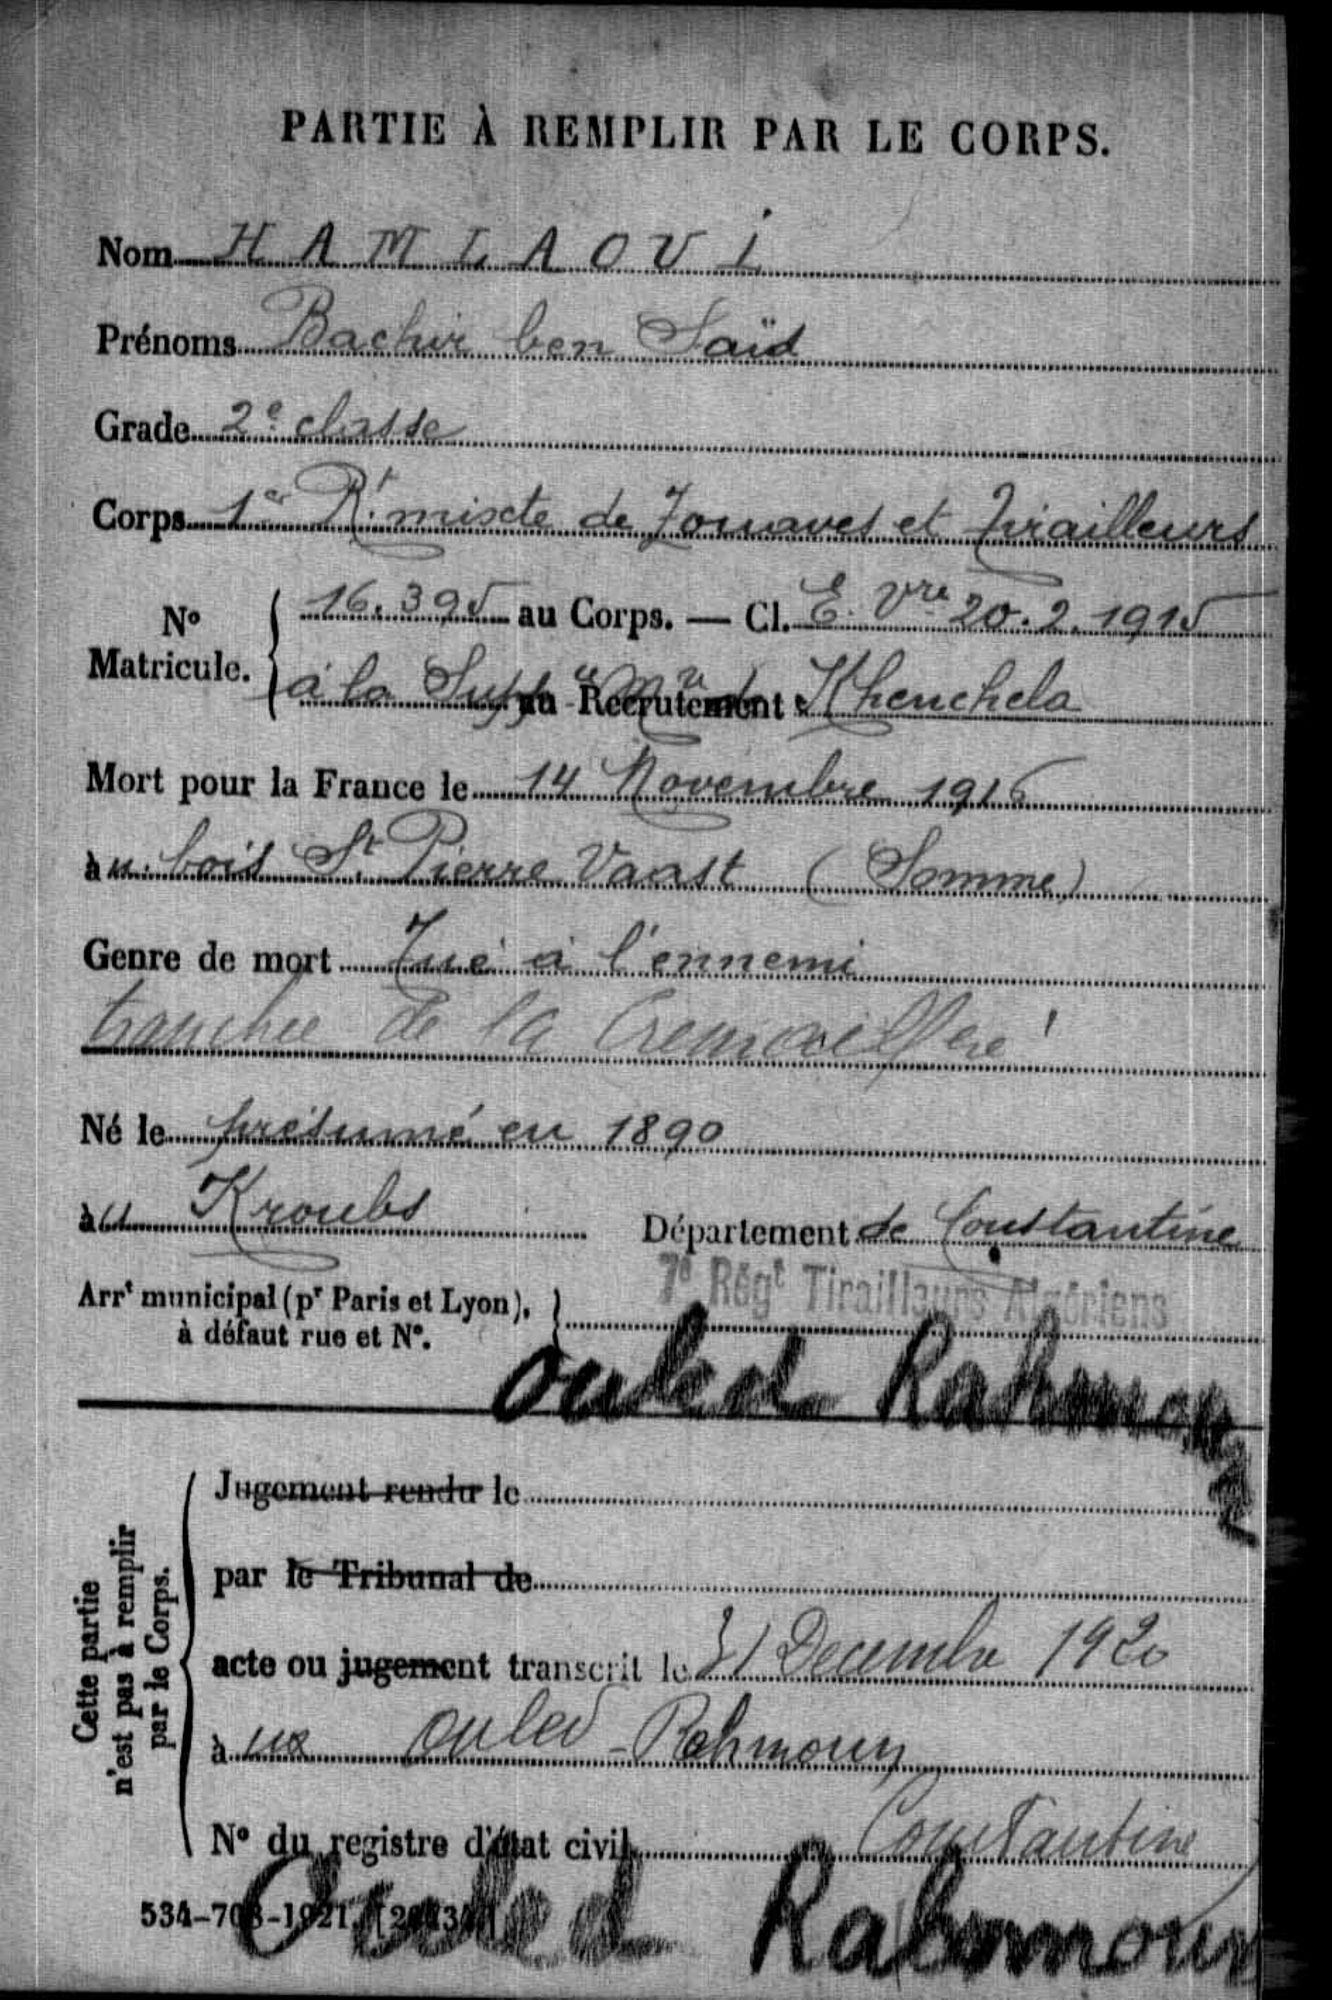 PARTIE À REMPLIR PAR LE CORPS.
Nom HAMLAOUI
Prénoms Bachir ben Saïd
Grade 2e classe
Corps 1er Rt mixte de Zouaves et Tirailleurs
No Matricule. 16.395 au Corps. — Cl. E. Vre 20.2.1915
à la au Recrutement Khenchela
Mort pour la France le 14 Novembre 1916
au bois St Pierre Vaast (Somme)
Genre de mort Tué à l'ennemi
tranchée de la Cremaillère
Né le présumé en 1890
au Kroubs Département de Constantine
7e Régt Tirailleurs Algériens
Arrt municipal (pr Paris et Lyon), à défaut rue et No.
Ouled Rahmoun
Cette partie n'est pas à remplir par le Corps.
Jugement rendu le
par le Tribunal de
acte ou jugement transcrit le 31 Decembre 1920
à Ouled-Rahmoun
No du registre d'état civil Constantine
534-708-1921.
Ouled Rahmoun